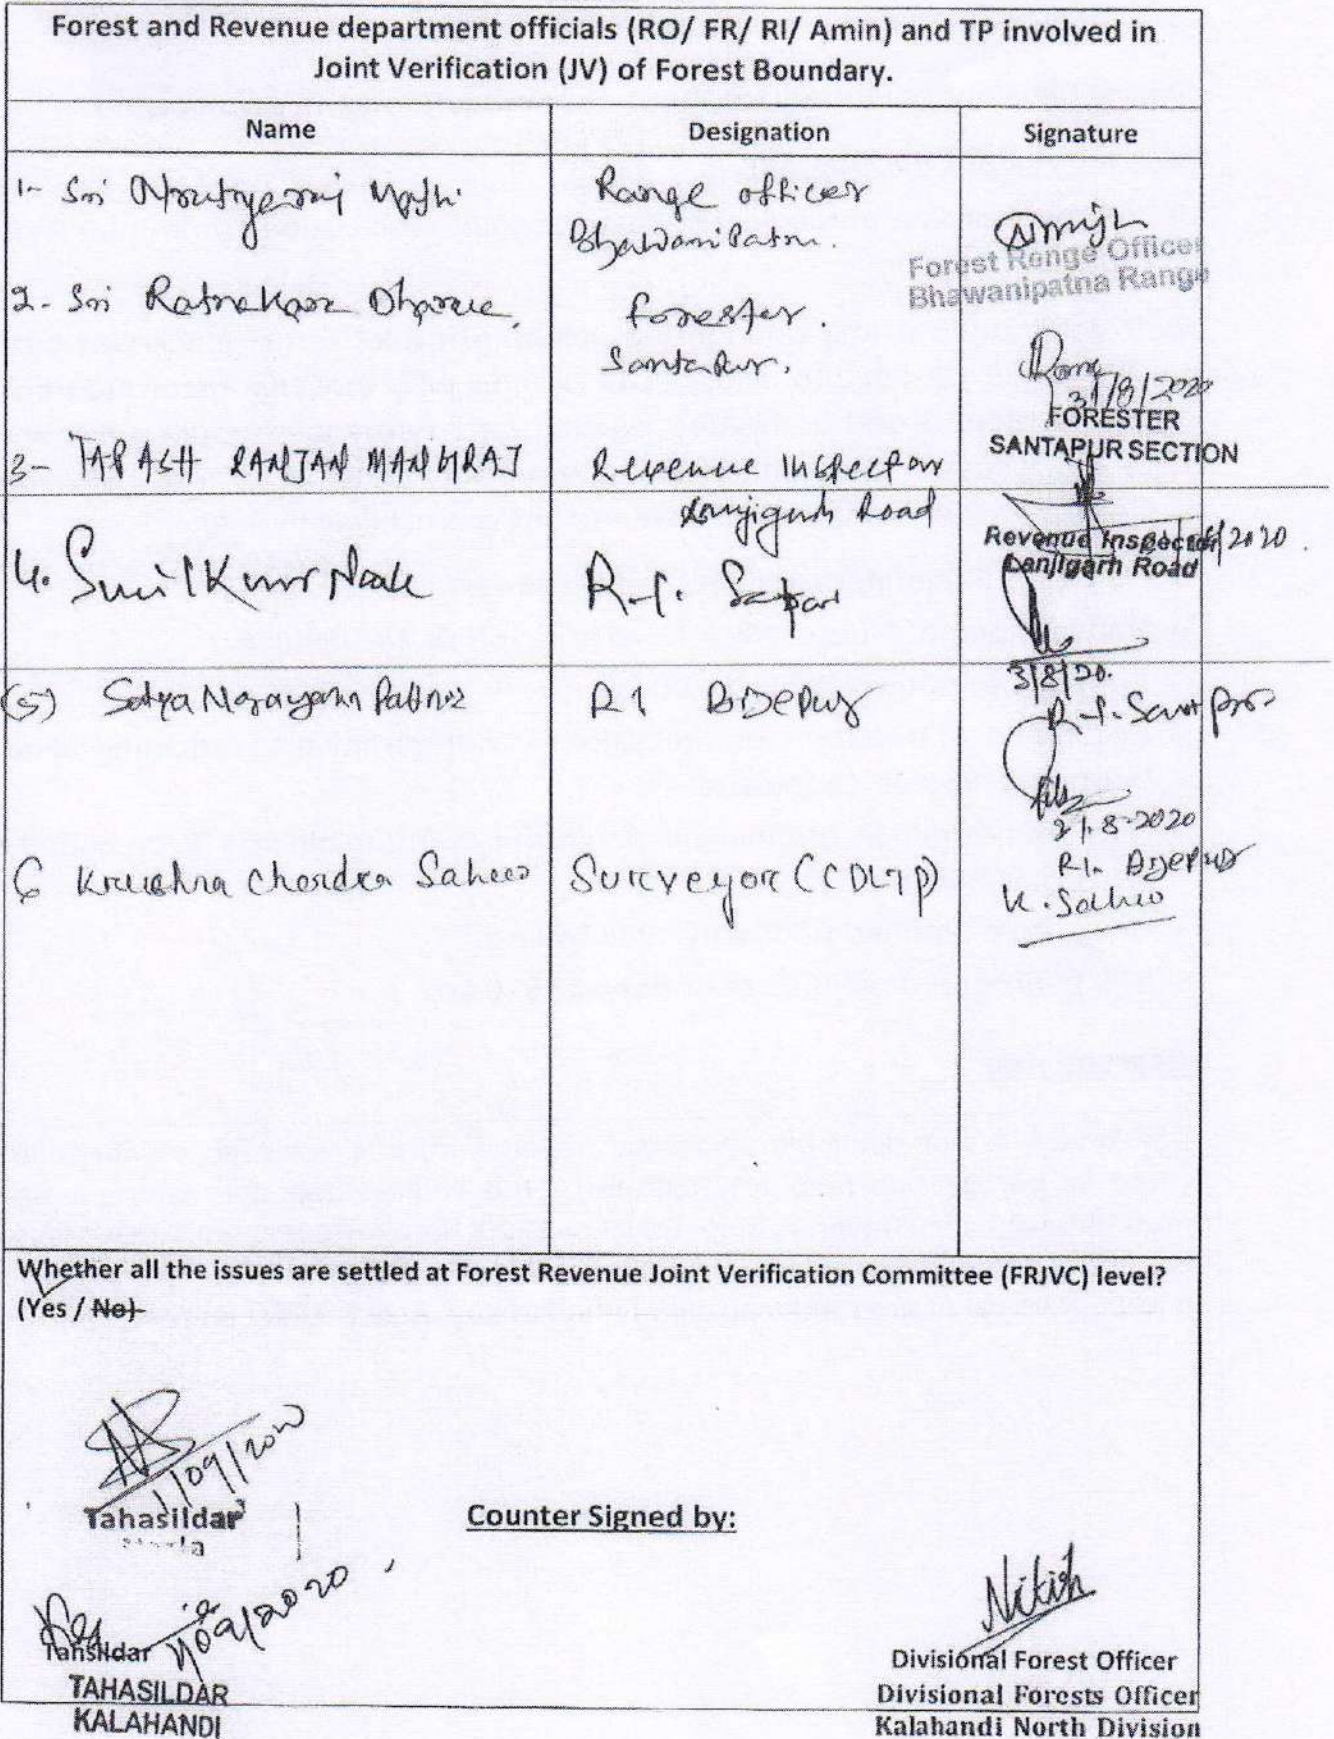 Forest and Revenue department officials (RO/ FR/ RI/ Amin) and TP involved in
Joint Verification (JV) of Forest Boundary.
Name Designation Signature
1- Sri Majhi Range officer
Bhawanipatna.
Forest Range Officer
Bhawanipatna Range
2- Sri Ratnakar Forester.
Santapur.
31/8/2020
FORESTER
SANTAPUR SECTION
3- TAPASH RANJAN MANGRAJ Revenue Inspector
Lanjigarh Road
Revenue Inspector
Lanjigarh Road
4. Sunil Kumar Naik R.I. Santpur
3/8/20.
R.I. Santpur
(5) Satya Narayana R I BIJEPUR
31.8.2020
R.I. Bijepur
6 Krushna Chandra Sahoo Surveyor (CDLTP) K. Sahoo
Whether all the issues are settled at Forest Revenue Joint Verification Committee (FRJVC) level?
(Yes / No)
1/09/2020
Tahasildar
Counter Signed by:
1/09/2020
Nitish
Tahsildar
TAHASILDAR
KALAHANDI
Divisional Forest Officer
Divisional Forests Officer
Kalahandi North Division